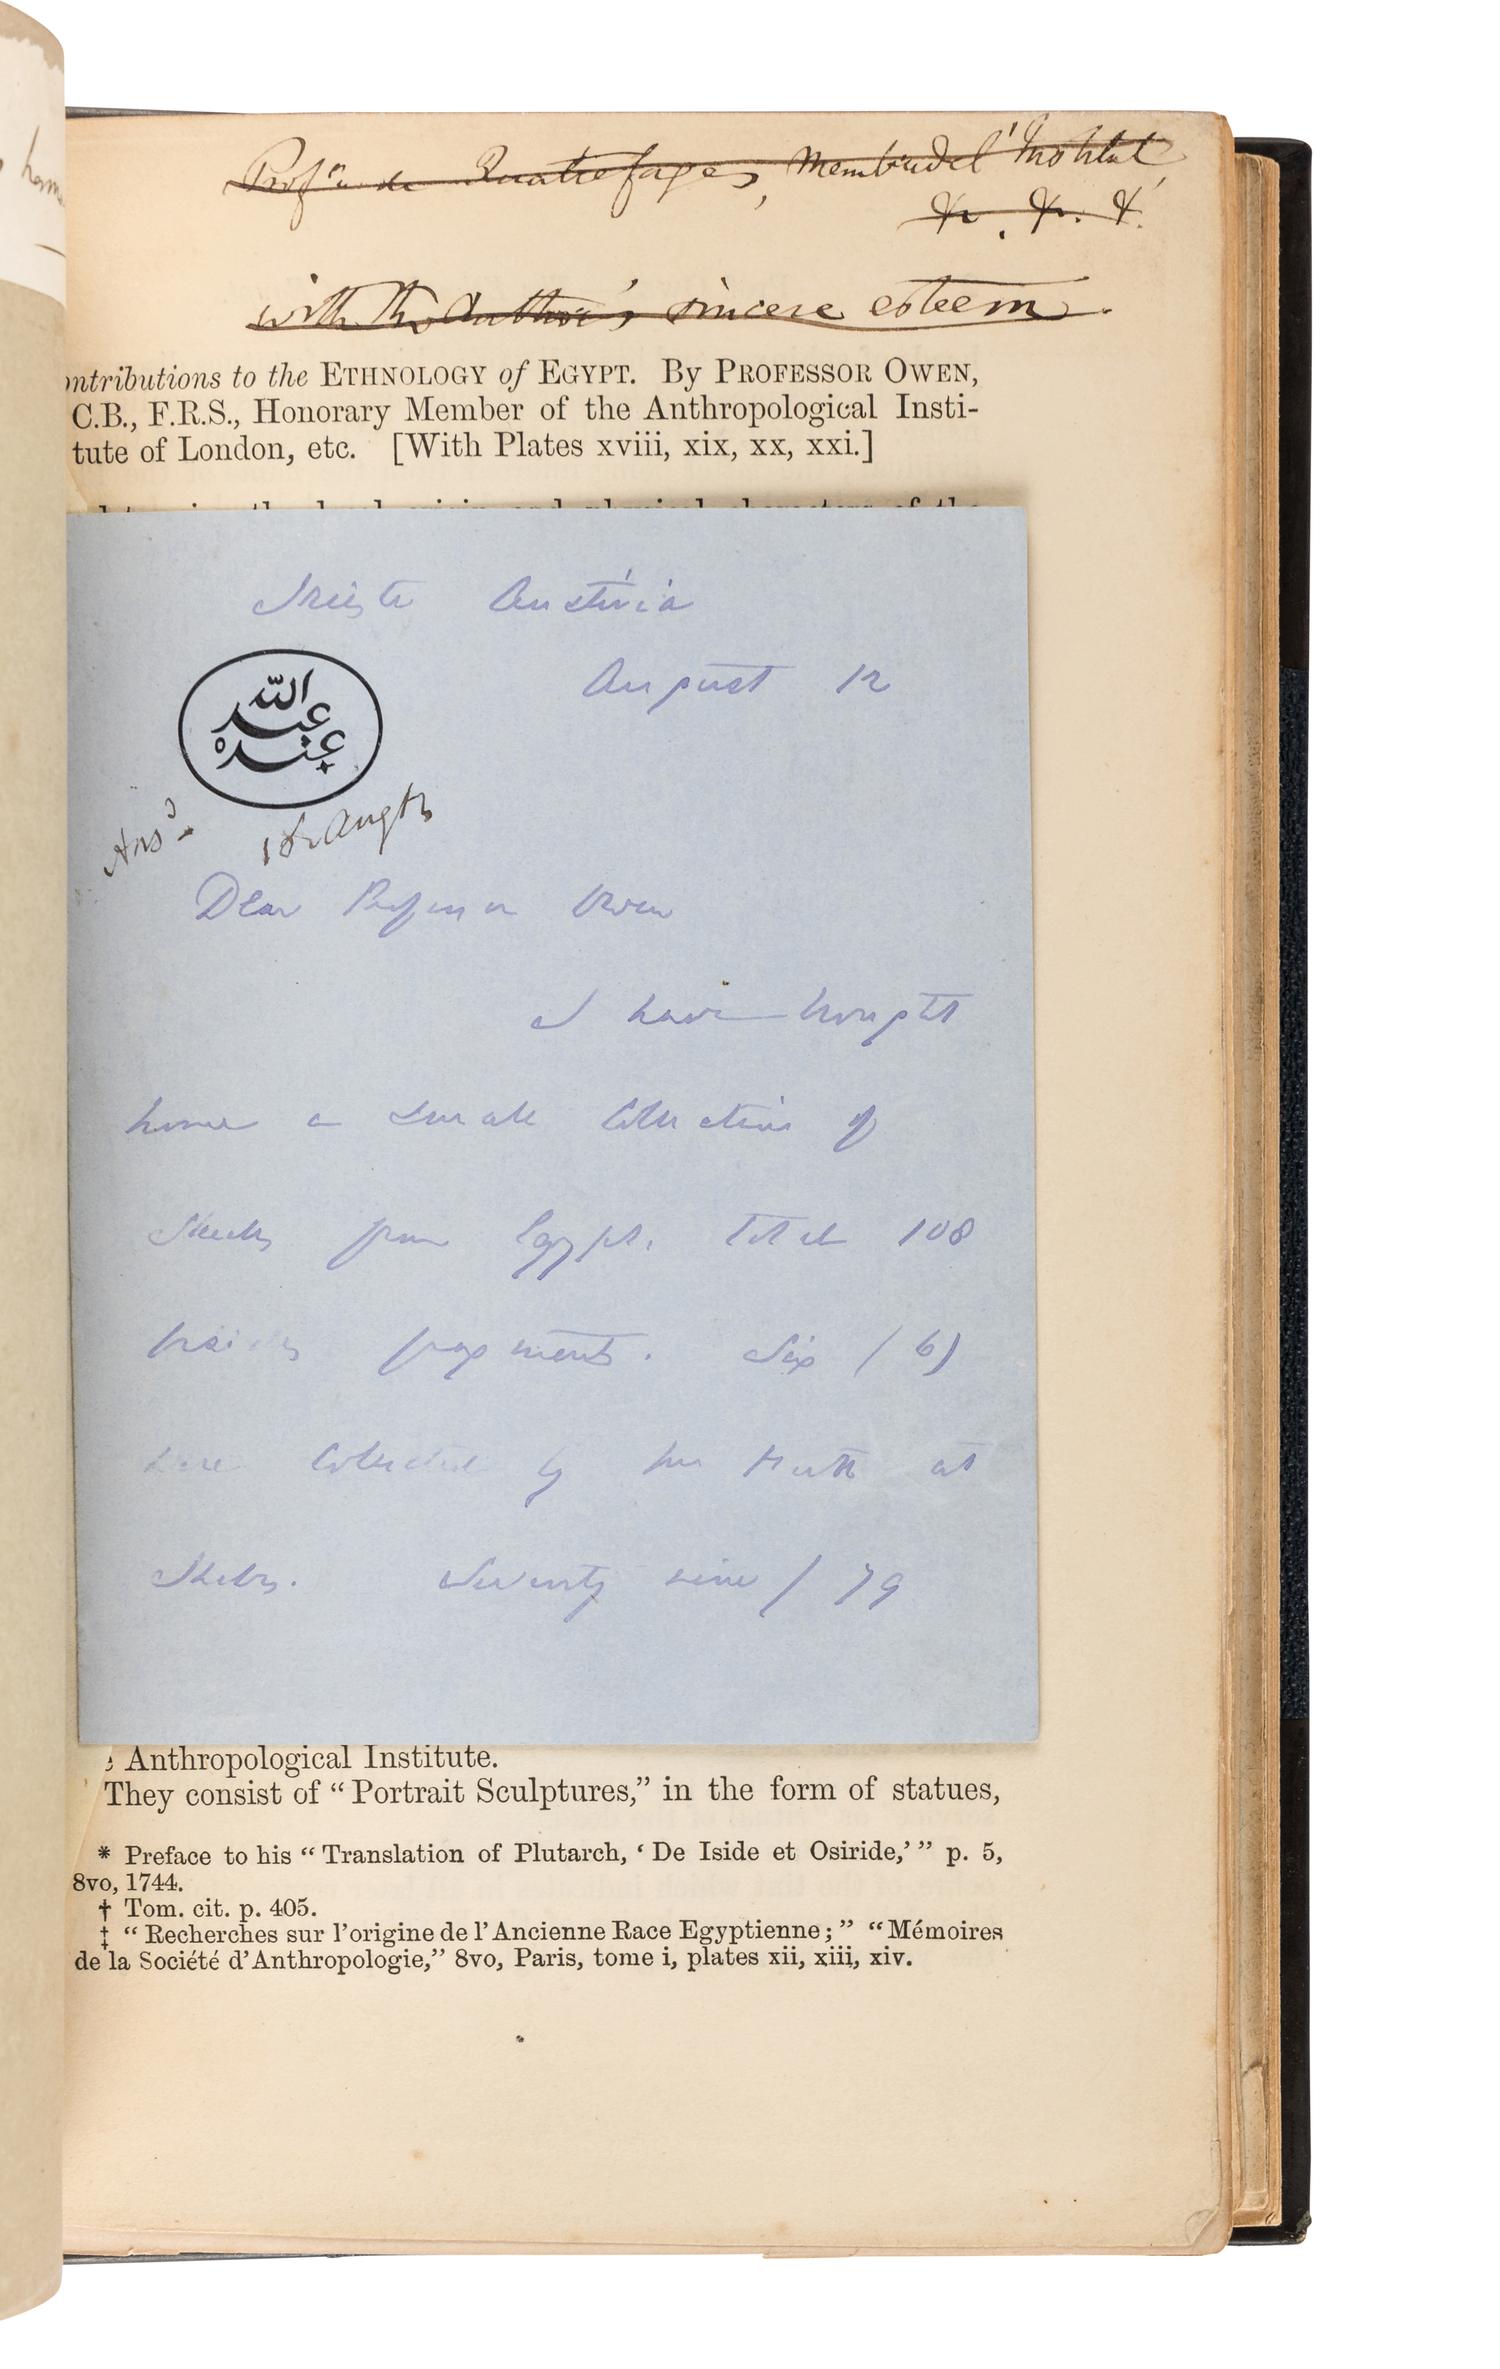 Prof.r de Quatrefages, Membre de l'Institut
&c. &c. &c.
with the Author's sincere esteem.
ontributions to the ETHNOLOGY of EGYPT. By PROFESSOR OWEN,
C.B., F.R.S., Honorary Member of the Anthropological Insti-
tute of London, etc. [With Plates xviii, xix, xx, xxi.]
Trieste Austria
August 12
الله
عبد
عبده
Ans.d
Dear Professor Owen
I have brought
home a small collection of
Skulls from Egypt. Total 108
besides fragments. Six (6)
were collected by at
Thebes. Seventy nine / 79
e Anthropological Institute.
They consist of “Portrait Sculptures,” in the form of statues,
* Preface to his “Translation of Plutarch, ‘De Iside et Osiride,’” p. 5,
8vo, 1744.
† Tom. cit. p. 405.
‡ “Recherches sur l'origine de l'Ancienne Race Egyptienne;” “Mémoires
de la Société d'Anthropologie,” 8vo, Paris, tome i, plates xii, xiii, xiv.